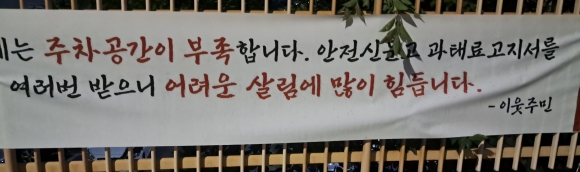 는 주차공간이 부족합니다. 안전신문고 과태료고지서를
여러번 받으니 어려운 살림에 많이 힘듭니다.
-이웃주민